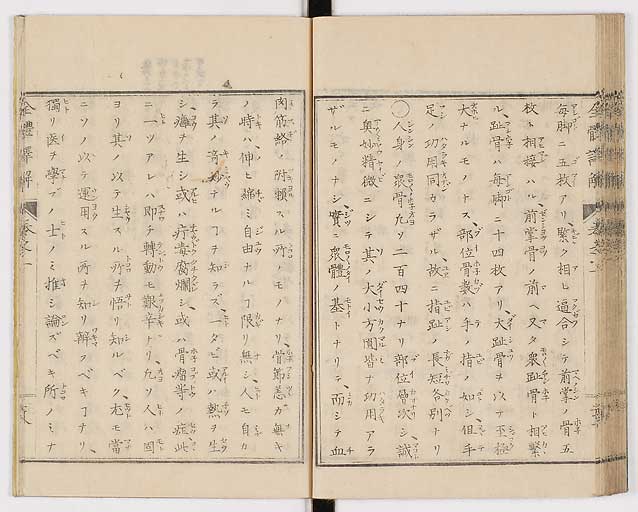 毎脚ニ五枚アリ緊ク相ヒ逼合シテ前掌ノ骨五
枚ト相接ハル、前掌骨ノ前ヘ又タ衆趾骨ト相繋
ル、趾骨ハ毎脚ニ十四枚アリ、大趾骨ヲ以テ至極
大ナルモノトス、部位骨数ハ手ノ指ノ如シ但手
足ノ功用同カラザル、故ニ指趾ノ長短各別トリ
〇人身ノ衆骨凡ソ二百四十ナリ部位層次シ、誠
ニ奥妙精微ニシテ其ノ大小方圓皆ナ功用アラ
ザルモノナシ、實ニ衆體ノ基トナリテ、而シテ血
肉筋絡ノ附頼スル所ノモノナリ、骨萬恙ガ無キ
ノ時ハ伸ヒ縮ミ自由ナルヿ限リ無シ、人モ自カ
ラ其ノ奇妙ナルヿヲ知ラズ、一タビ或ハ熱ヲ生
シ、瘡ヲ生シ或ハ疔毒腐爛シ、或ハ骨瘤等ノ症此
ニ一ツアレハ即チ轉動モ艱辛ナリ、凡ソ人ハ固
ヨリ其ノ以テ生スル所ヲ悟リ知ルベク、尤モ當
ニソノ以テ運用スル所ヲ知リ辨フベキヿナリ、
獨リ医ヲ學ブノ士ノミ推シ論ズベキ所ノミナ
全體譯解 巻之一